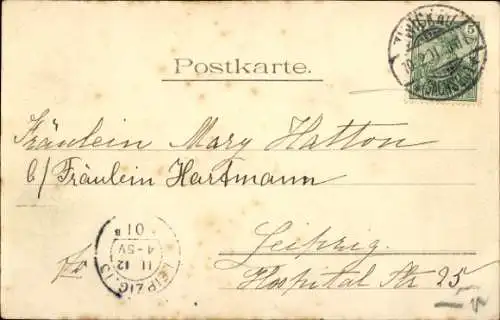 ZWICKAU
(SACHSEN)
5
Postkarte.
Fräulein Mary Hatton
b/ Fräulein Hartmann
Leipzig.
Hospital Str 25
LEIPZIG. 13
11 12
4-5V
01